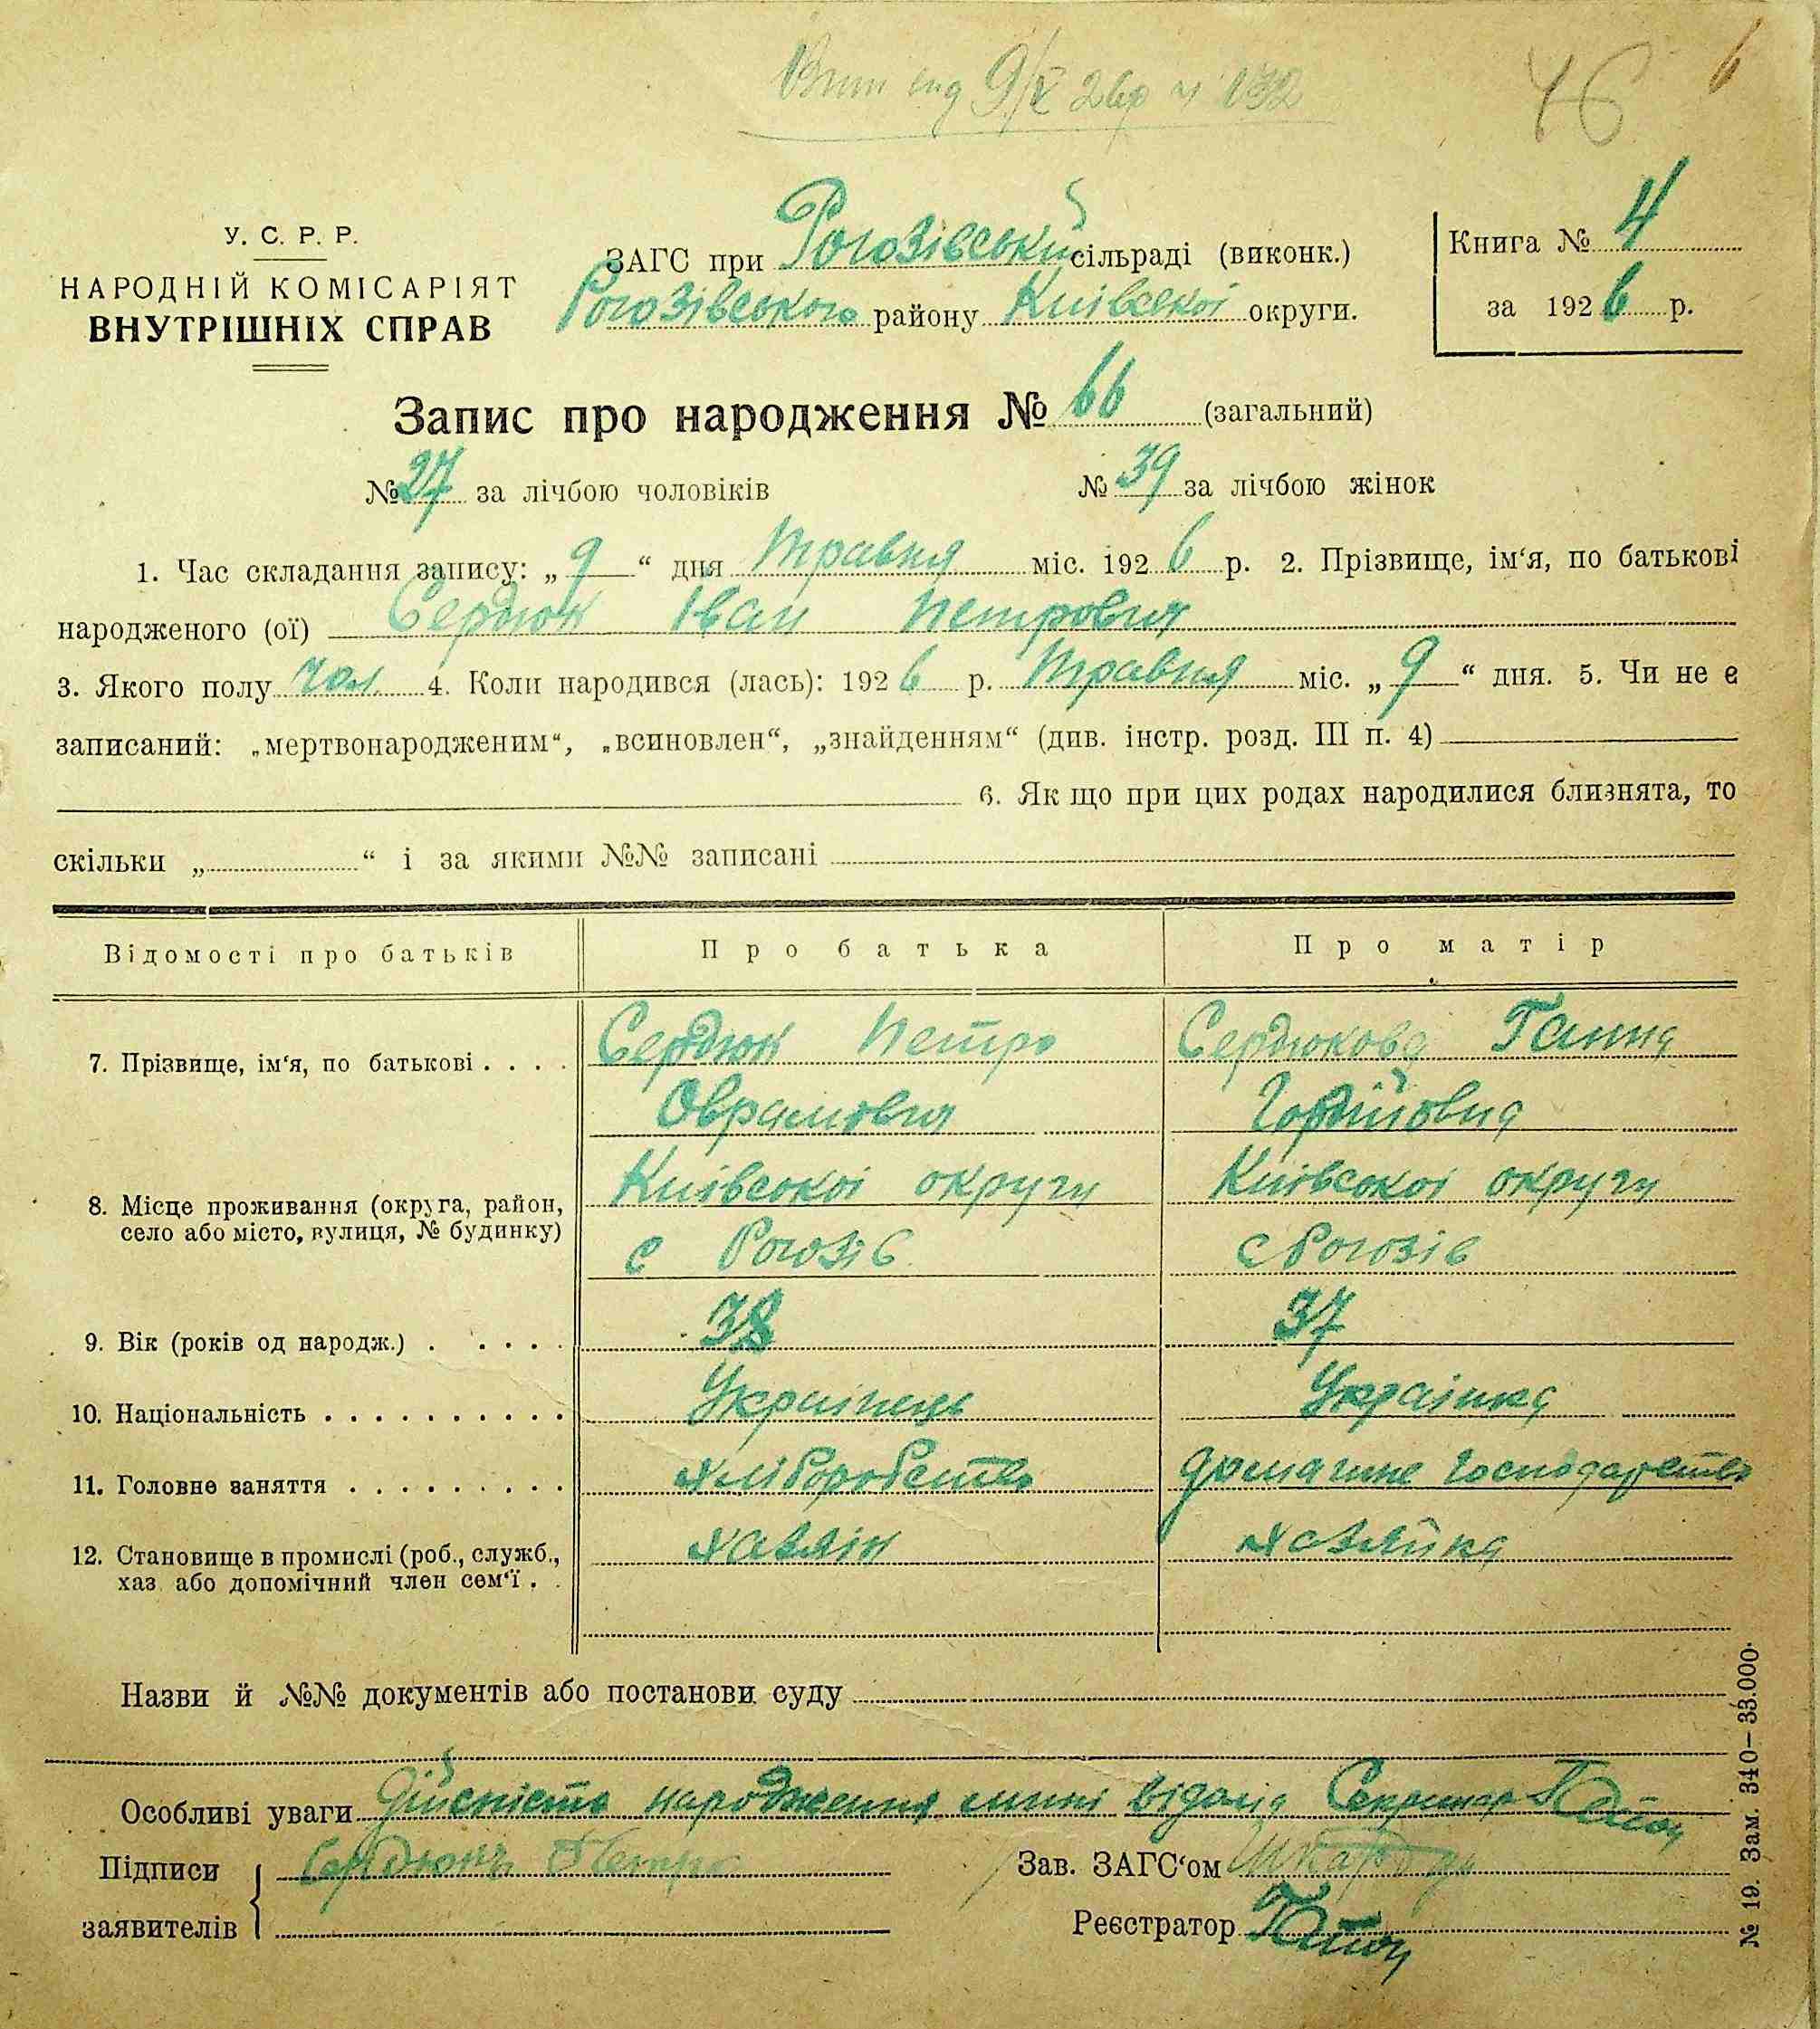 9/V 26р № 132
46
6
У. С. Р. Р.
НАРОДНІЙ КОМІСАРІЯТ
ВНУТРІШНІХ СПРАВ
ЗАГС при Рогозівській сільраді (виконк.)
Рогозівського району Київської округи.
Книга № 4
за 1926 р.
Запис про народження № 66 (загальний)
№ 27 за лічбою чоловіків № 39 за лічбою жінок
1. Час складання запису: „ 9 “ дня Травня міс. 1926 р. 2. Прізвище, ім‘я, по батькові
народженого (ої) Сердюк Іван Петрович
3. Якого полу чол. 4. Коли народився (лась): 1926 р. Травня міс. „ 9 “ дня. 5. Чи не є
записаний: „мертвонародженим“, „всиновлен“, „знайденням“ (див. інстр. розд. III п. 4)
6. Як що при цих родах народилися близнята, то
скільки „ “ і за якими №№ записані
Відомості про батьків Про батька Про матір
7. Прізвище, ім‘я, по батькові . . . . Сердюк Петро Сердюкова Ганна
Оврамович Гордійовна
8. Місце проживання (округа, район, Київської округи Київської округи
село або місто, вулиця, № будинку) с Рогозів с Рогозів
9. Вік (років од народж.) . . . . . 38 37
10. Національність . . . . . . . . . . Українець Українка
11. Головне заняття . . . . . . . . . хліборобство домашнє господарство
12. Становище в промислі (роб., служб., хазяїн хазяйка
хаз. або допомічний член сем‘ї . .
Назви й №№ документів або постанови суду
Особливі уваги Дійсність народження мині відома Секретар
Підписи Сердюкъ Петро Зав. ЗАГС‘ом
заявителів Реєстратор
№ 19. Зам. 340—33.000.